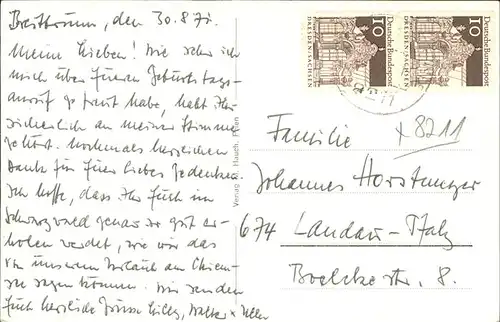 Breitbrunn, den 30.8.71.
Meine Lieben! Wie sehr ich
mich über Euren Geburtstags-
anruf gefreut habe, habt Ihr
sicherlich an meiner Stimme
gehört. Nochmals herzlichen
Dank für Euer liebes Gedenken.
Ich hoffe, dass Ihr Euch im
Schwarzwald genau so gut er-
holen werdet, wie wir das
von unserem Urlaub am Chiem-
see sagen können. Wir senden
Euch herzliche Grüsse Lilly, Walter +
Verlag
10 Deutsche Bundespost
DRESDEN/SACHSEN
10 Deutsche Bundespost
DRESDEN/SACHSEN
x 8211
Familie
Johannes Horstmeyer
674 Landau-Pfalz
Boelckestr. 8.